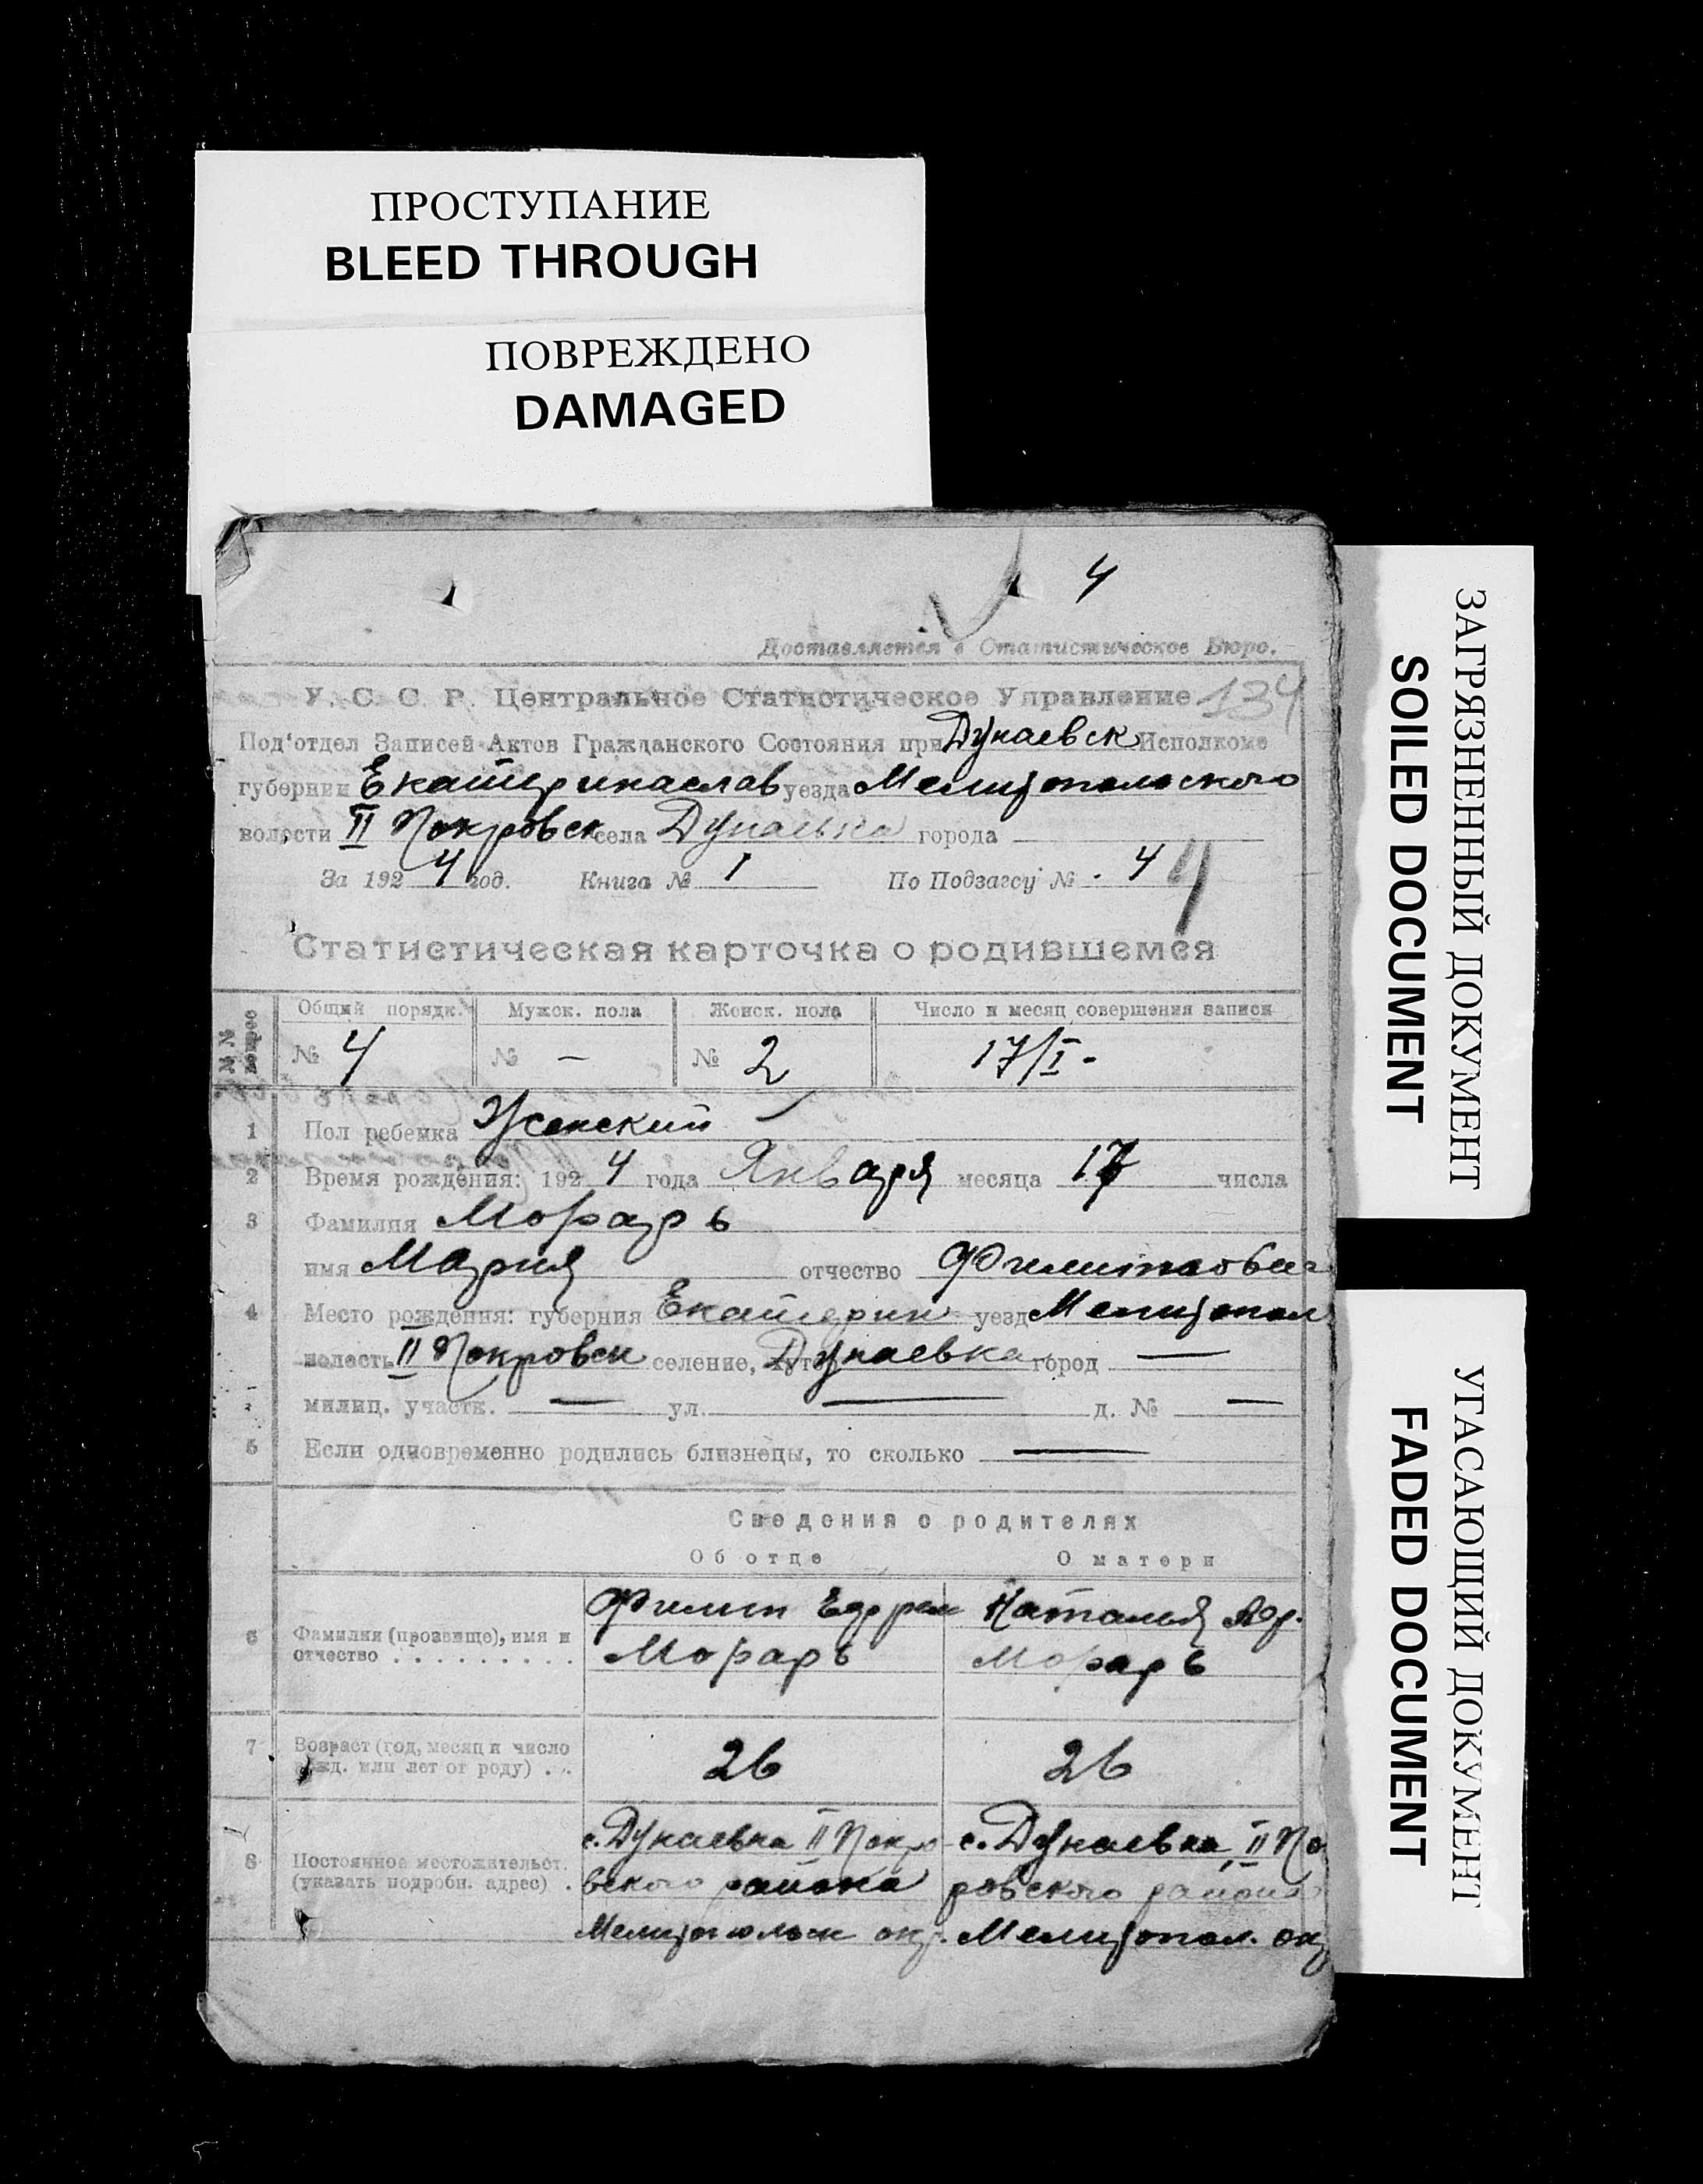 ПРОСТУПАНИЕ
BLEED THROUGH
ПОВРЕЖДЕНО
DAMAGED
4
Доставляется в Статистическое Бюро.
У. С. С. Р. Центральное Статистическое Управление 134
Под'отдел Записей Актов Гражданского Состояния при Дунаевск Исполкоме
губернии Екатеринаслав уезда Мелитопольского
волости II Покровск села Дунаевка города
За 192 4 год. Книга № 1 По Подзагсу № 4
Статистическая карточка о родившемся
№№ вопросов Общий порядк. Мужск. пола Женск. пола Число и месяц совершения записи
№ 4 № — № 2 17/I -
1 Пол ребенка Женский
2 Время рождения: 192 4 года Января месяца 17 числа
3 Фамилия Морарь
имя Мария отчество Филипповна
4 Место рождения: губерния Екатерин уезд Мелитопол
волость II Покровск селение, хутор Дунаевка город —
милиц. участк. — ул. — д. № —
5 Если одновременно родились близнецы, то сколько —
Сведения о родителях
Об отце О матери
Филип Ефрем Наталья
6 Фамилия (прозвище), имя и
отчество . . . . . . . . . Морарь Морарь
7 Возраст (год, месяц и число
рожд. или лет от роду) . . 26 26
с. Дунаевка II Покро с. Дунаевка, II По
8 Постоянное местожительст.
(указать подробн. адрес) . вского района ровского района
Мелитопольск окр. Мелитопол. окр
ЗАГРЯЗНЕННЫЙ ДОКУМЕНТ
SOILED DOCUMENT
УГАСАЮЩИЙ ДОКУМЕНТ
FADED DOCUMENT